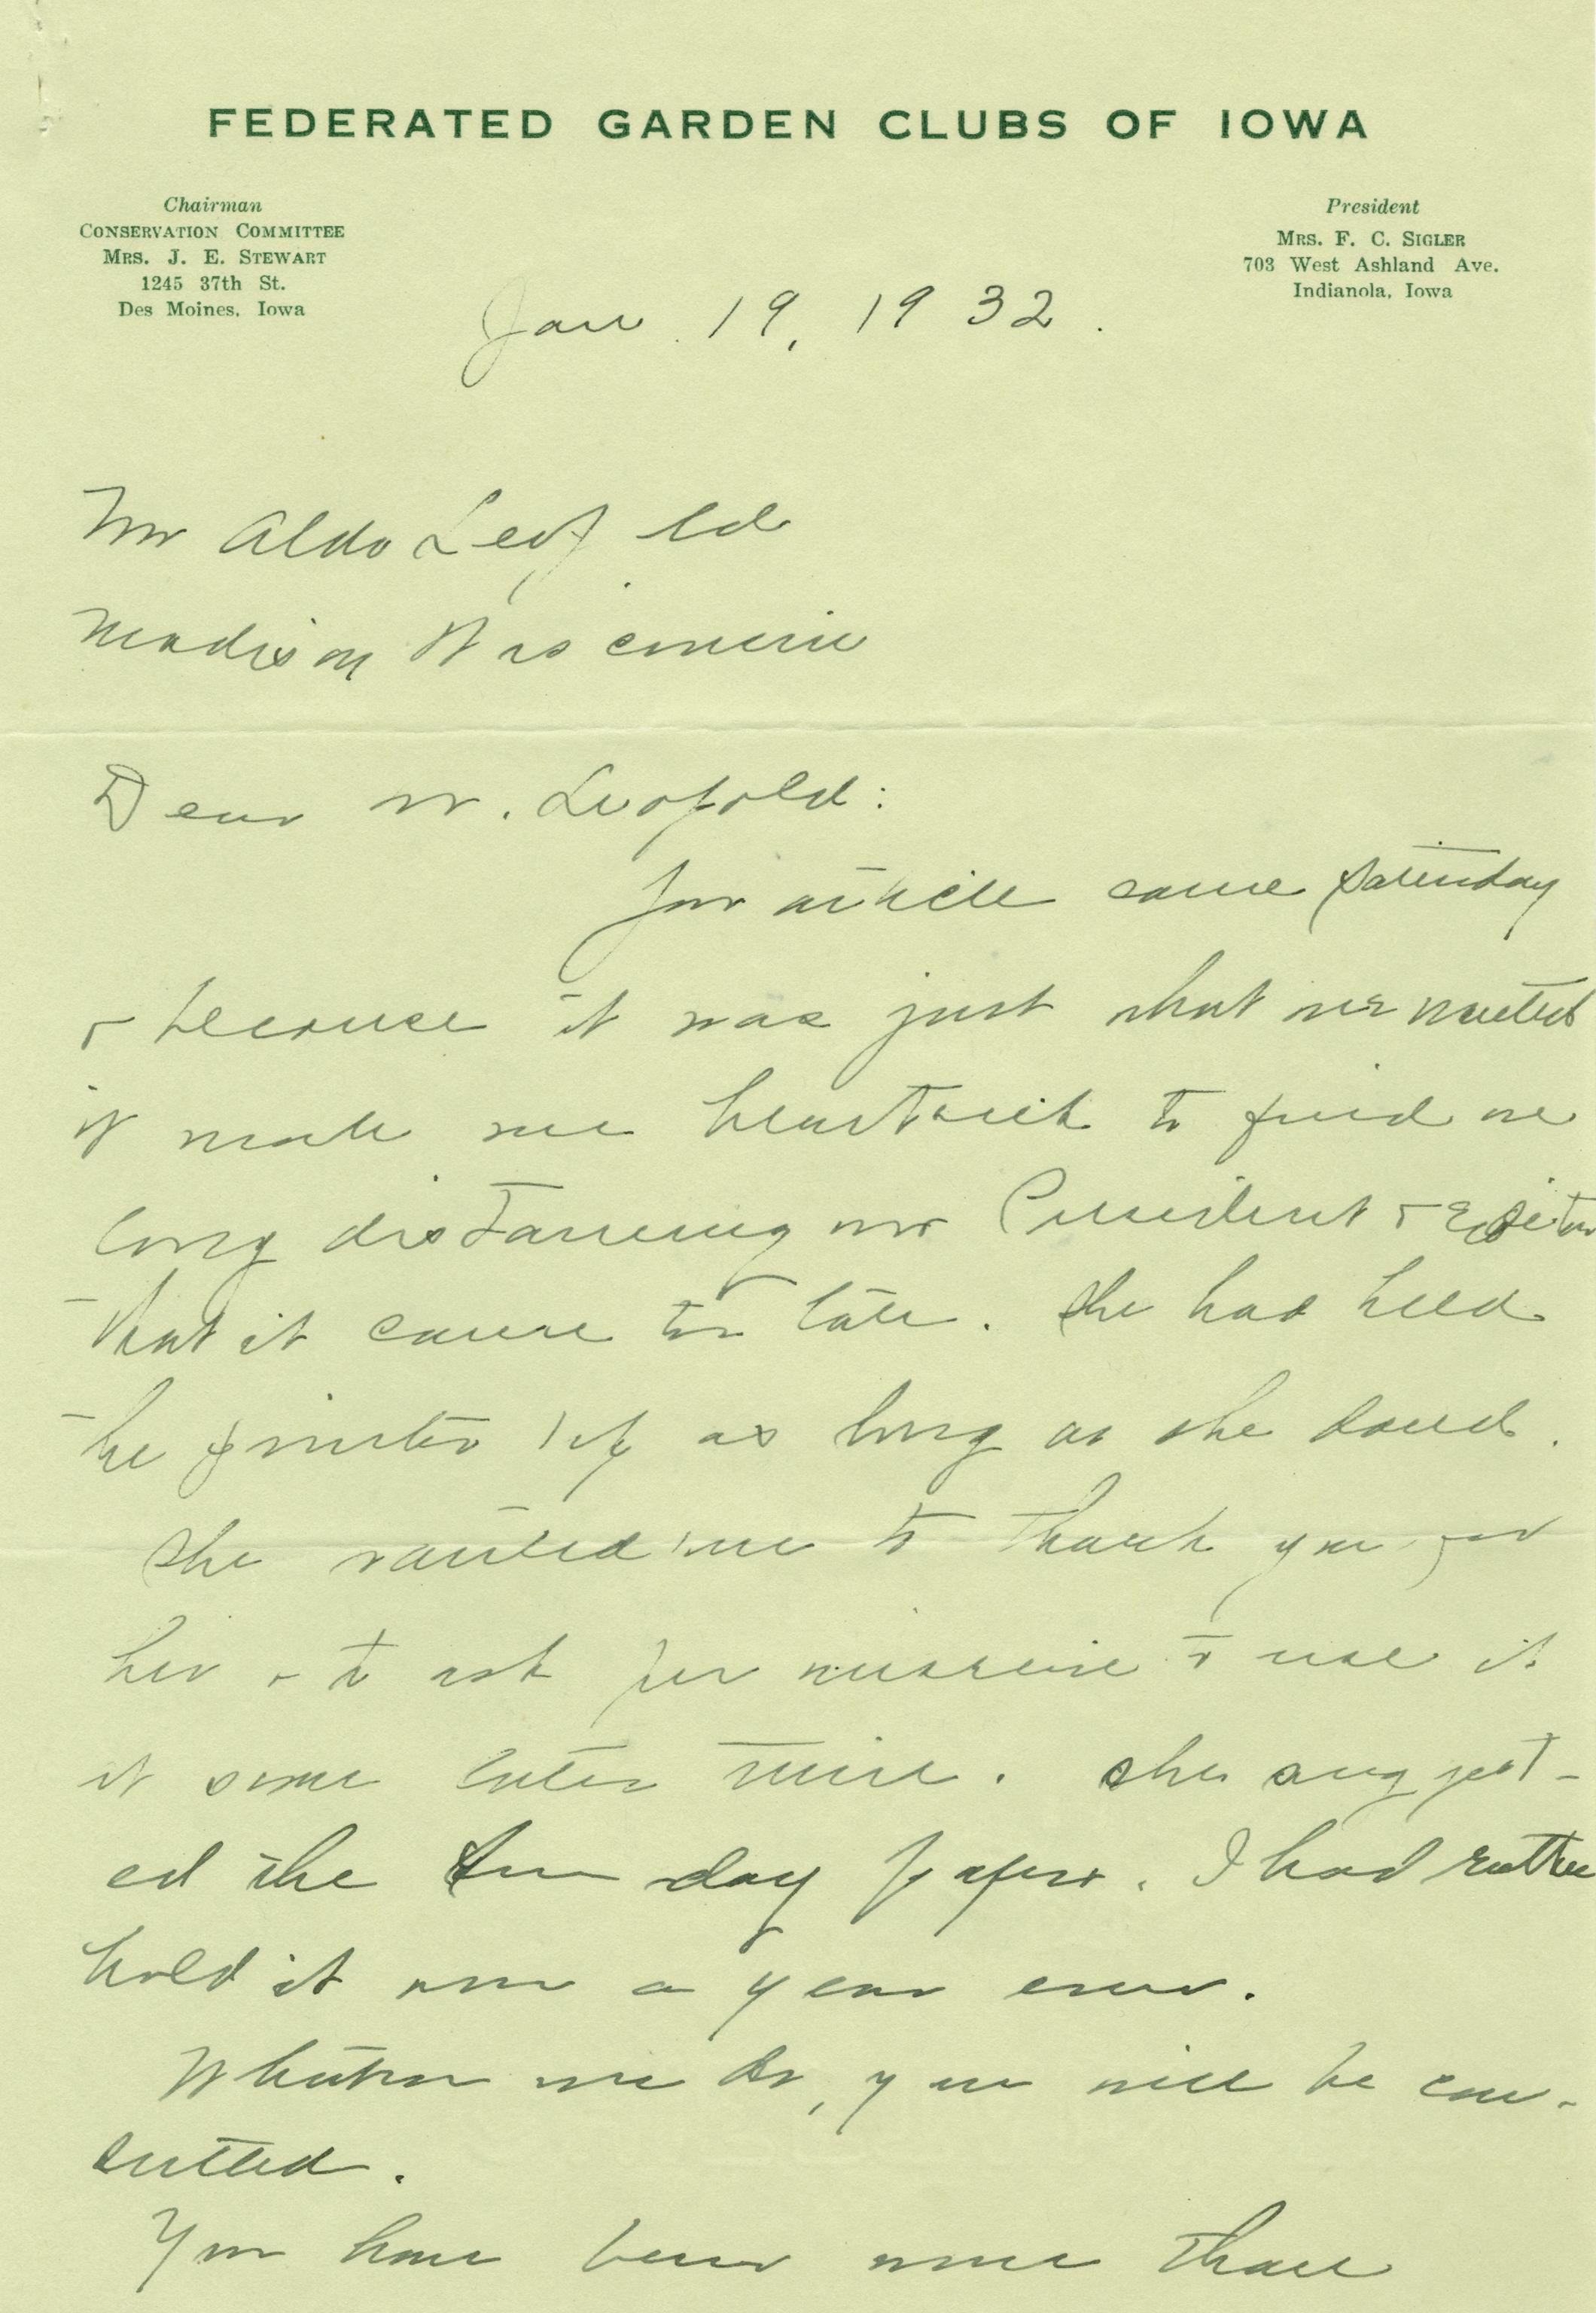 FEDERATED GARDEN CLUBS OF IOWA
Chairman
CONSERVATION COMMITTEE
MRS. J. E. STEWART
1245 37th St.
Des Moines, Iowa
President
MRS. F. C. SIGLER
703 West Ashland Ave.
Indianola, Iowa
Jan. 19, 1932.
Mr Aldo Leopold
Madison Wisconsin
Dear Mr. Leopold:
Your article came Saturday
& because it was just what we wanted
it made me heartsick to find on
long distancing our President & Editor
that it came too late. She had held
the printer off as long as she dared.
She wanted me to thank you for
her & to ask permission to use it
at some later time. She suggest-
ed the Sunday paper. I had rather
hold it over a year even.
Whatever we do, you will be con-
sulted.
You have been more than